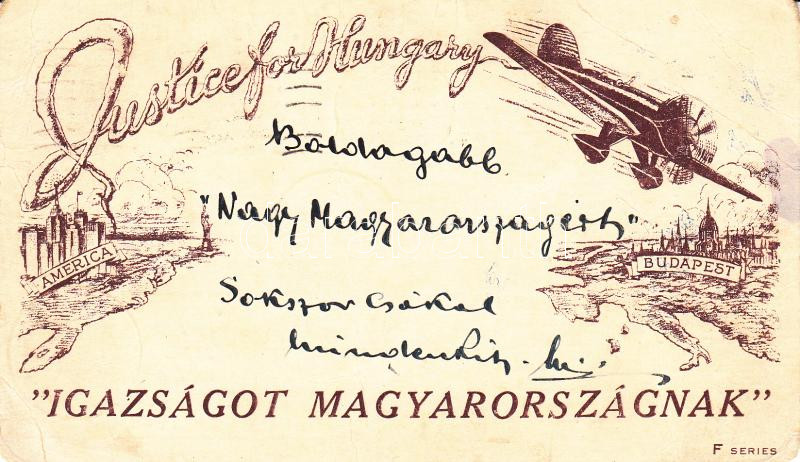 Justice for Hungary
Boldogabb
"Nagy Magyarországért"
AMERICA
BUDAPEST
Sokszor Csókol
mindenkit
"IGAZSÁGOT MAGYARORSZÁGNAK"
F SERIES